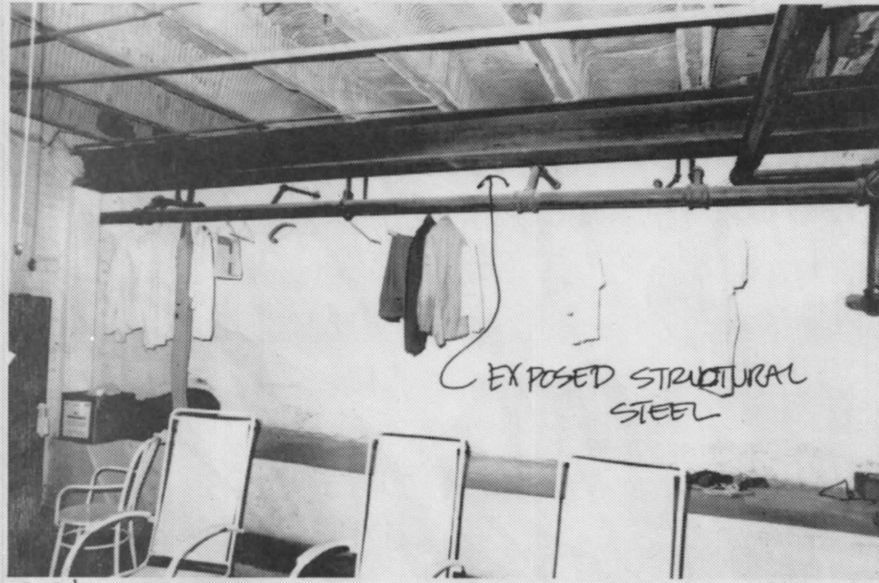 EXPOSED STRUCTURAL
STEEL